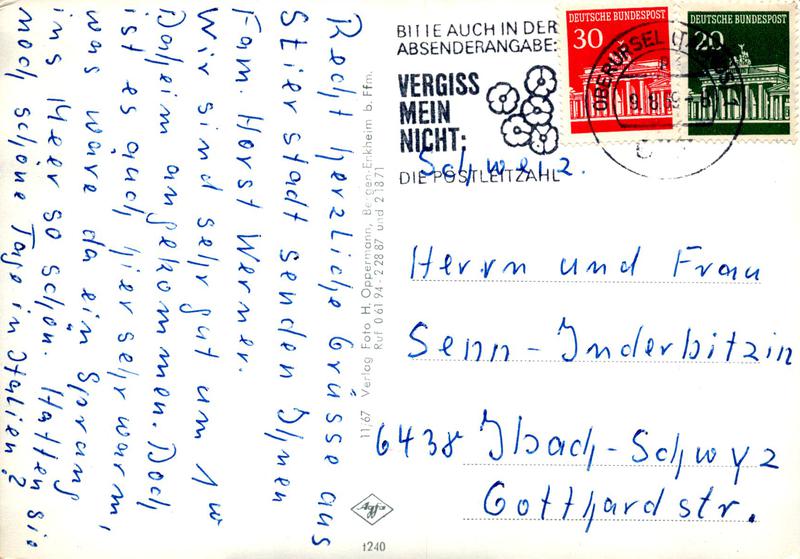 Recht herzliche Grüsse aus
Stierstadt senden Ihnen
Fam. Horst Werner.
Wir sind sehr gut um 1 w
Daheim angekommen. Doch
ist es auch hier sehr warm,
was wäre da ein Sprung
ins Meer so schön. Hatten sie
noch schöne Tage in Italien?
11/67 Verlag Foto H. Oppermann, Bergen-Enkheim b. Ffm.
Ruf 0 61 94 - 2 28 87 und 2 18 71
Agfa
1240
BITTE AUCH IN DER
ABSENDERANGABE:
VERGISS
MEIN
NICHT:
DIE POSTLEITZAHL
DEUTSCHE BUNDESPOST
30
DEUTSCHE BUNDESPOST
20
OBERURSEL
9.8.69
Schweiz.
Herrn und Frau
Senn-Inderbitzin
6438 Ibach-Schwyz
Gotthardstr.